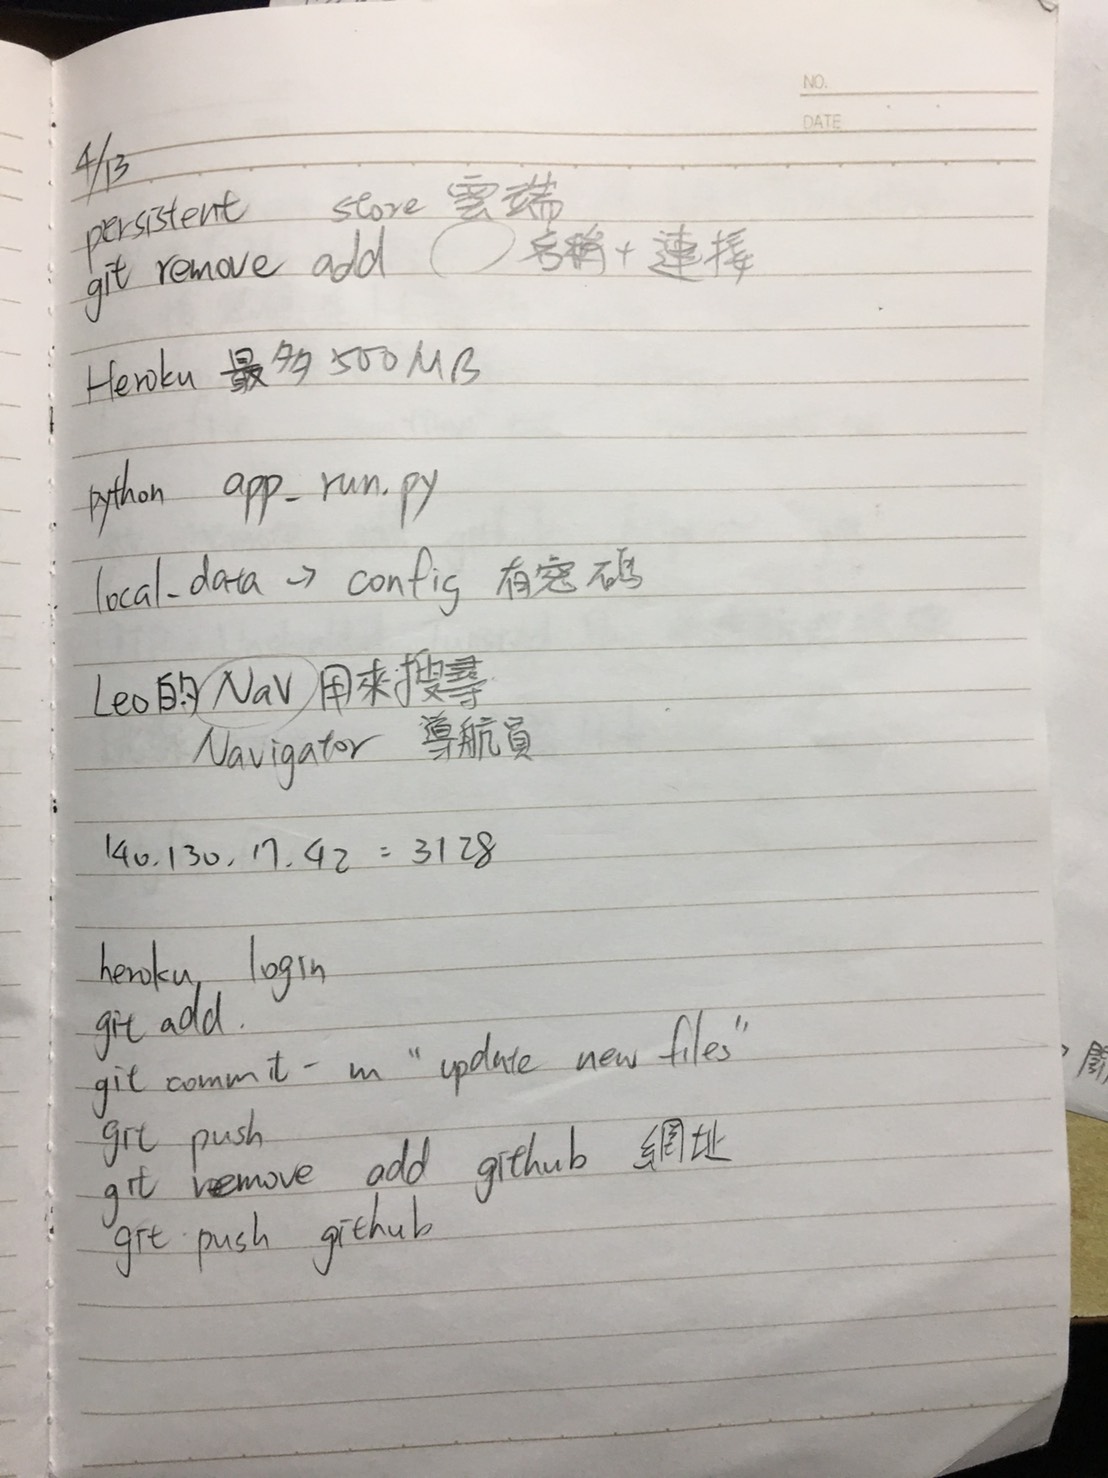 NO.
DATE
4/13
persistent store 雲端
git remove add 名稱 + 連接
Heroku 最多 500 MB
python app_run.py
local_data → config 有密碼
Leo的 Nav 用來搜尋
Navigator 導航員
140.130.17.42 = 3128
heroku login
git add .
git commit -m "update new files"
git push
git remove add github 網址
git push github